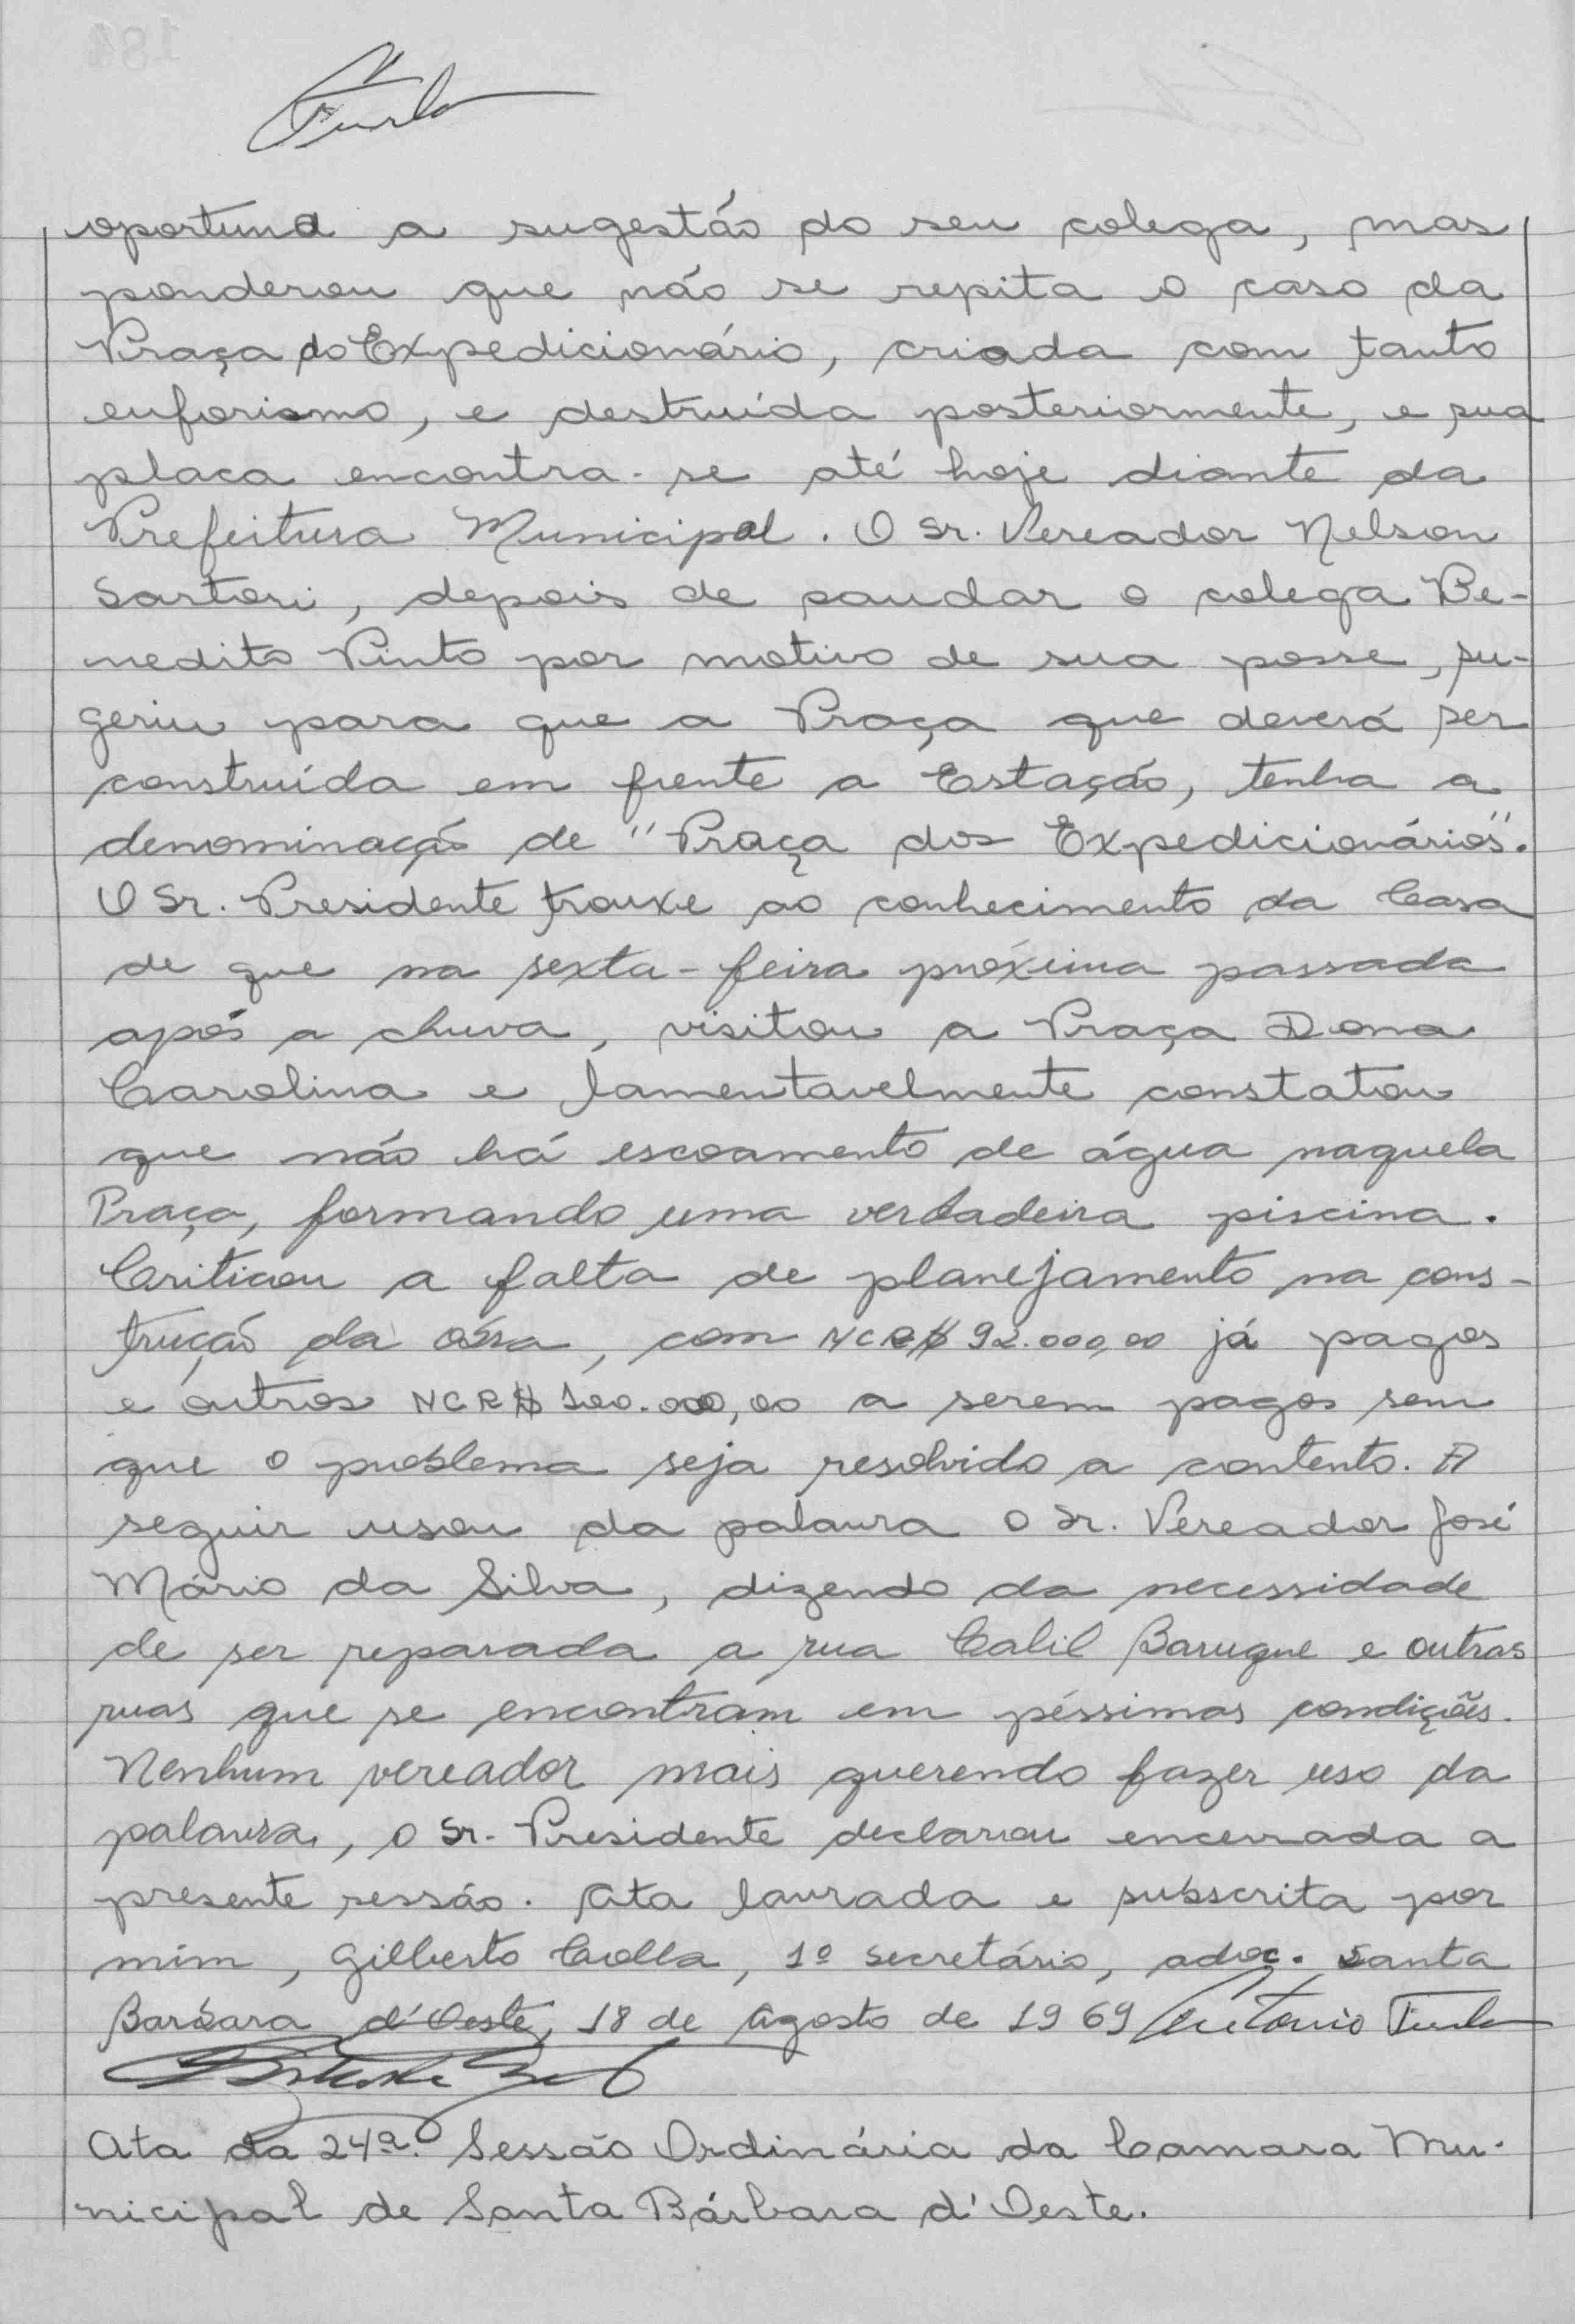 Furlan
oportuna a sugestão do seu colega, mas
ponderou que não se repita o caso da
Praça do Expedicionário, criada com tanto
euforismo, e destruída posteriormente, e sua
placa encontra-se até hoje diante da
Prefeitura Municipal. O Sr. Vereador Nelson
Sartori, depois de saudar o colega Be-
nedito Pinto por motivo de sua posse, su-
geriu para que a Praça que deverá ser
construída em frente a Estação, tenha a
denominação de "Praça dos Expedicionários".
O Sr. Presidente trouxe ao conhecimento da Casa
de que na sexta-feira próxima passada
após a chuva, visitou a Praça Dona
Carolina e lamentavelmente constatou
que não há escoamento de água naquela
Praça, formando uma verdadeira piscina.
Criticou a falta de planejamento na cons-
trução da obra, com NCR$ 92.000,00 já pagos
e outros NCR$ 100.000,00 a serem pagos sem
que o problema seja resolvido a contento. A
seguir usou da palavra o Sr. Vereador José
Mário da Silva, dizendo da necessidade
de ser reparada a rua Calil Baruque e outras
ruas que se encontram em péssimas condições.
Nenhum vereador mais querendo fazer uso da
palavra, o Sr. Presidente declarou encerrada a
presente sessão. Ata lavrada e subscrita por
mim, Gilberto Colla, 1º secretário, adoc. Santa
Barbara d'Oeste, 18 de Agosto de 1969 Antonio Furlan
Ata da 24ª. Sessão Ordinária da Camara Mu-
nicipal de Santa Bárbara d'Oeste.